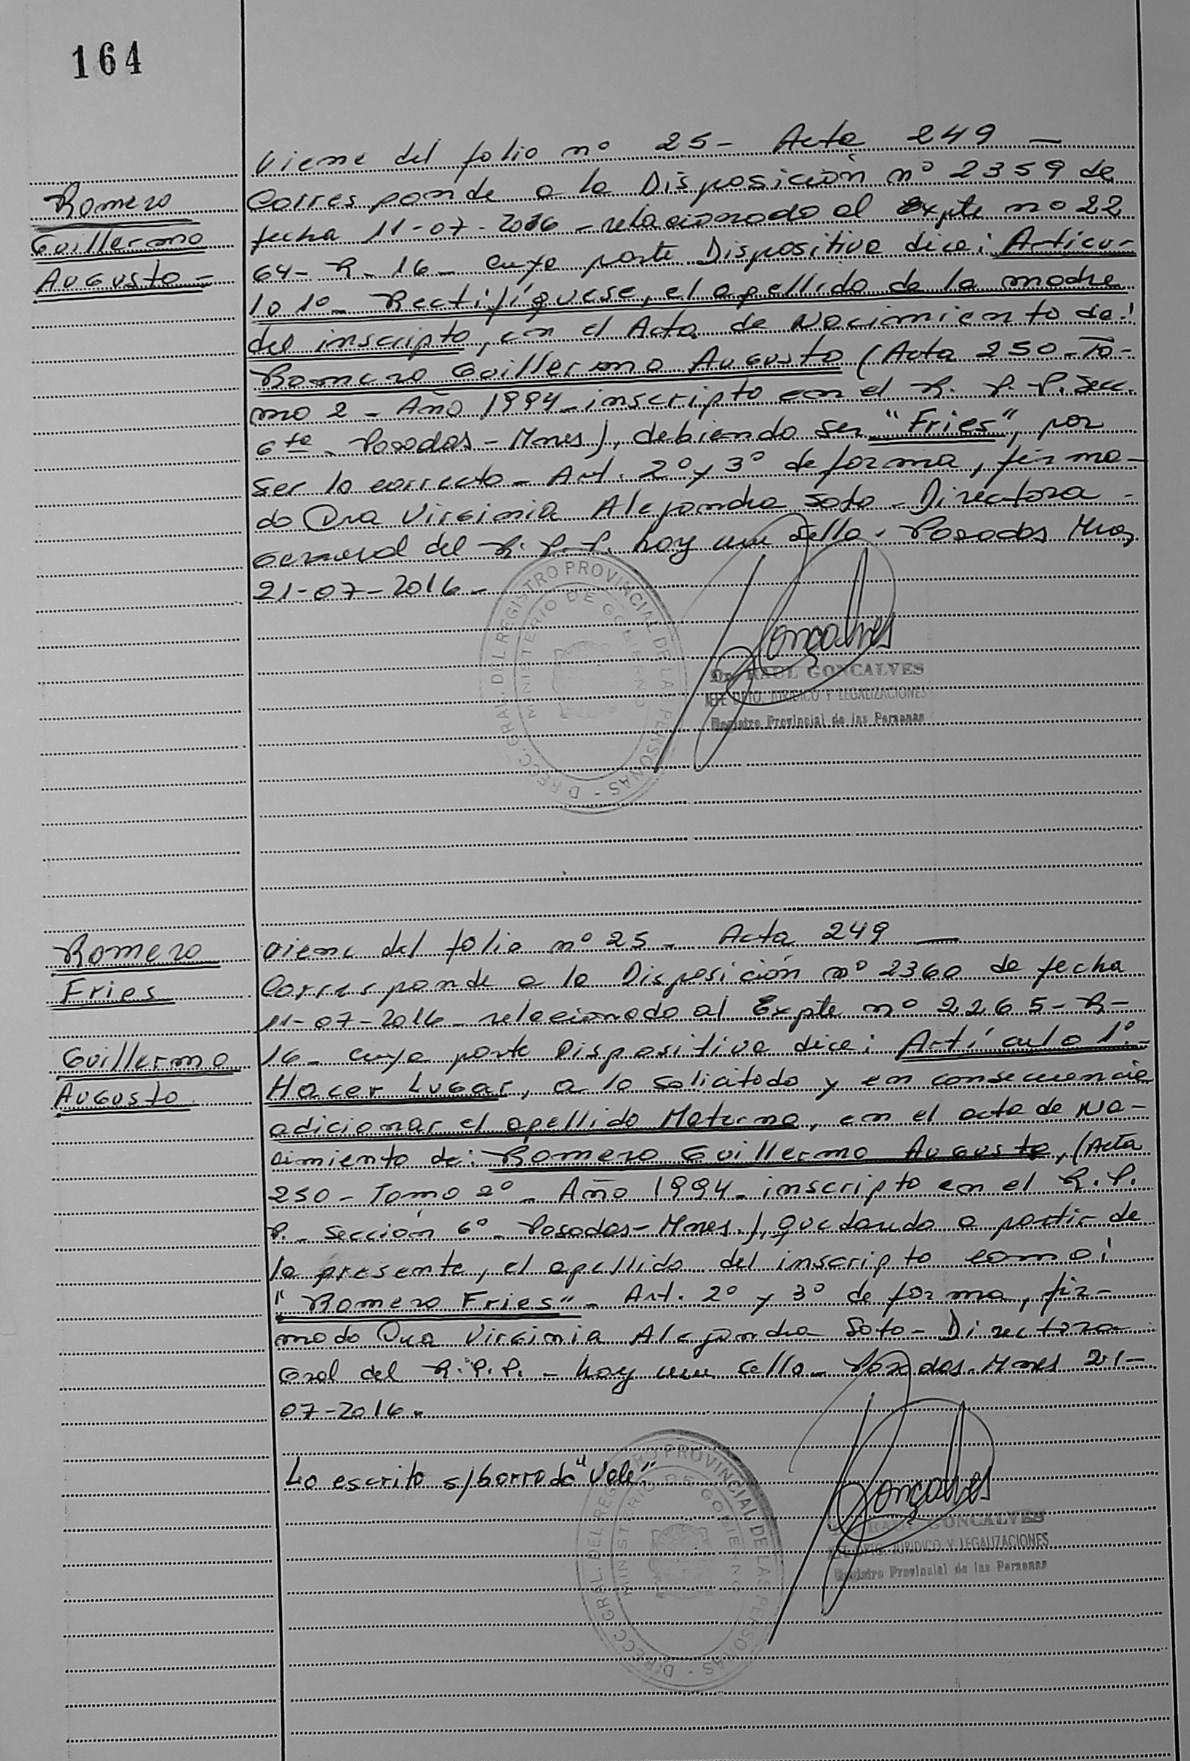 164
Viene del folio nº 25 - Acta 249 —
Romero
Guillermo
Augusto -
Corresponde a la Disposición nº 2359 de
fecha 11-07-2016 - relacionado al Expte nº 22
64 - R - 16 - cuya parte Dispositiva dice: Artícu-
lo 1º - Rectifíquese, el apellido de la madre
del inscripto, en el Acta de Nacimiento de:
Romero Guillermo Augusto (Acta 250 - To-
mo 2 - Año 1994 - inscripto en el R. P. P. Secc.
6ta - Posadas - Mnes), debiendo ser "Fries", por
ser lo correcto - Art. 2º y 3º de forma, firma-
do Dra Virginia Alejandra Soto - Directora -
General del R. P. P. hay un sello - Posadas Mnes
21-07-2016 -
DIRECC. GRAL. DEL REGISTRO PROVINCIAL DE LAS PERSONAS -
MINISTERIO DE GOBIERNO
Goncalves
Dr. RAUL GONCALVES
JEFE DPTO. JURIDICO Y LEGALIZACIONES
Registro Provincial de las Personas
Romero
Fries
Guillermo
Augusto.
Viene del folio nº 25 - Acta 249 —
Corresponde a la Disposición nº 2360 de fecha
11-07-2016 - relacionado al Expte nº 2265 - R -
16 - cuya parte Dispositiva dice: Artículo 1º -
Hacer Lugar, a lo solicitado y en consecuencia
adicionar el apellido Materno, en el acta de Na-
cimiento de: Romero Guillermo Augusto, (Acta
250 - Tomo 2º - Año 1994 - inscripto en el R. P.
P. - Sección 6º - Posadas - Mnes.), quedando a partir de
la presente, el apellido del inscripto como:
"Romero Fries" - Art. 2º y 3º de forma, fir-
mado Dra Virginia Alejandra Soto - Directora
Gral del R. P. P. - hay un sello - Posadas - Mnes 21 -
07-2016 -
Lo escrito s/borrado "Vale"
DIRECC. GRAL. DEL REGISTRO PROVINCIAL DE LAS PERSONAS -
MINISTERIO DE GOBIERNO
Goncalves
Dr. RAUL GONCALVES
JEFE DPTO. JURIDICO Y LEGALIZACIONES
Registro Provincial de las Personas